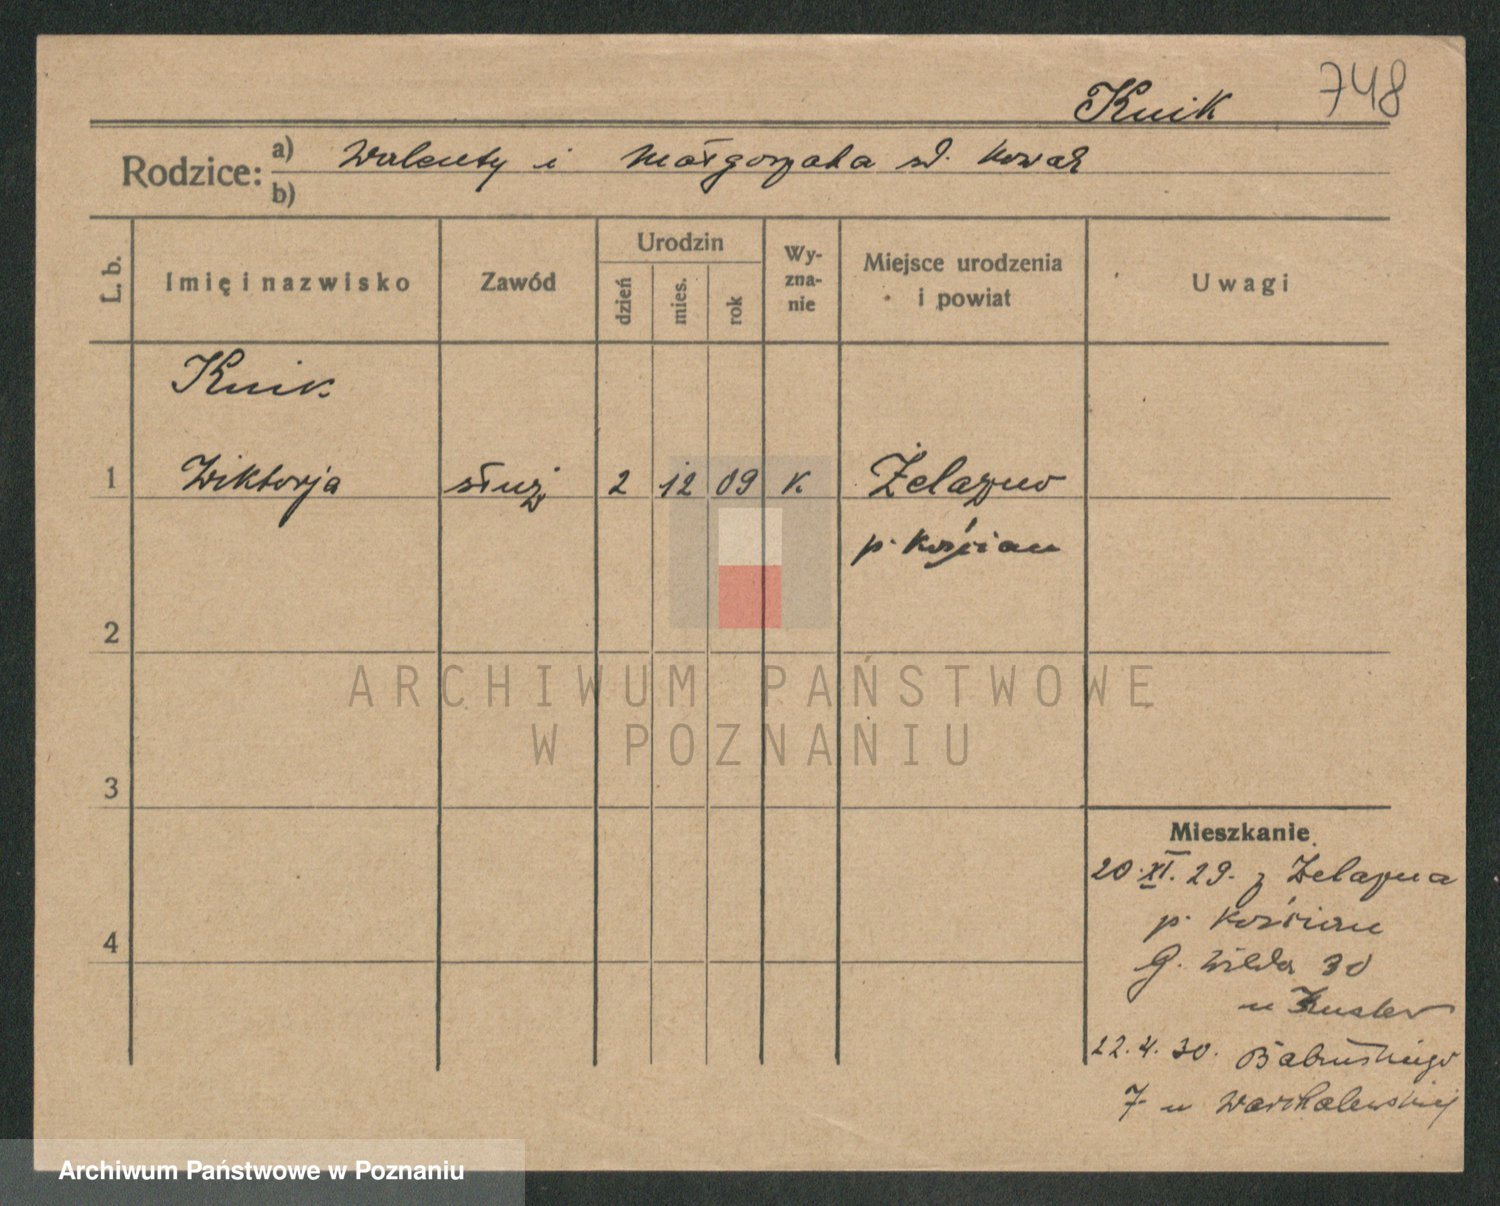 748
Knik
Rodzice: a) Walenty i Małgorzata z d. Nowak
b)
L. b. Imię i nazwisko Zawód Urodzin dzień mies. rok Wy-zna-nie Miejsce urodzenia i powiat Uwagi
Knik
1 Wiktorja służ 2 12 09 k. Żelazno
p. Kościan
2
ARCHIWUM PAŃSTWOWE
W POZNANIU
3
Mieszkanie
20.XI.29. z Żelazna
p. Kościan
4
G. Wilda 30
u
22.4.30.
7 u Warchalewskiej
Archiwum Państwowe w Poznaniu